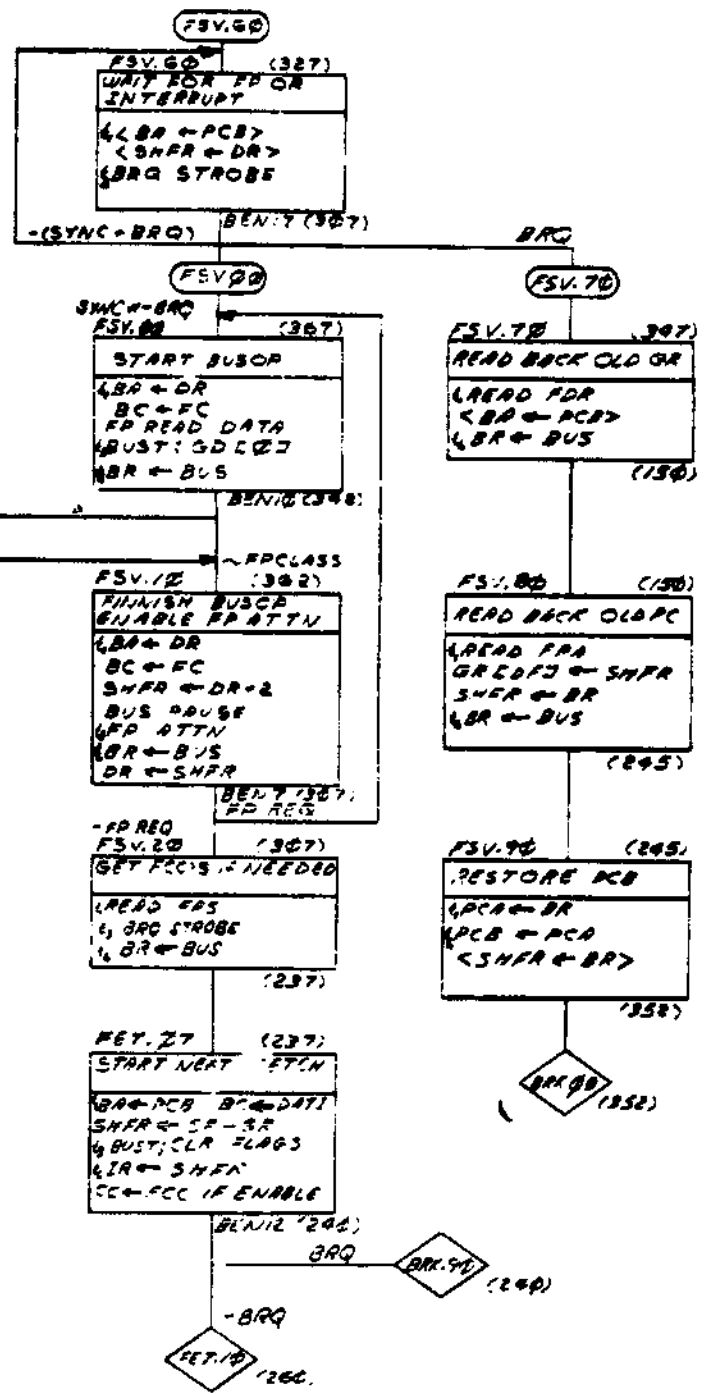 FSV.6Ø
FSV.6Ø (327)
WAIT FOR FP OR
INTERRUPT
<BA ← PCB>
<SHFR ← DR>
BRQ STROBE
BEN17 (3Ø7)
-(SYNC+BRQ)
BRQ
FSVØØ
SYNC*-BRQ
FSV.ØØ (367)
START BUSOP
BA ← DR
BC ← FC
FP READ DATA
BUST: GD[Ø]
BR ← BUS
~FPCLASS
FSV.1Ø (342)
FINNISH BUSOP
ENABLE FP ATTN
BA ← DR
BC ← FC
SHFR ← DR+2
BUS PAUSE
FP ATTN
BR ← BUS
DR ← SHFR
BEN7 (3Ø7)
FP REQ
-FP REQ
FSV.2Ø (3Ø7)
GET FCC'S IF NEEDED
READ FPS
BRQ STROBE
BR ← BUS
(237)
FET.Ø7 (237)
START NEXT FETCH
BA←PCB BC←DATI
SHFR ←
BUST; CLR FLAGS
IR ← SHFR
CC←FCC IF ENABLE
BEN12
BRQ
BRK.9Ø
(24Ø)
-BRQ
FET.1Ø
FSV.7Ø
FSV.7Ø (347)
READ BACK OLD GR
READ FDR
<BA ← PCB>
BR ← BUS
(15Ø)
FSV.8Ø (15Ø)
READ BACK OLD PC
READ FPA
GR[DF] ← SHFR
SHFR ← BR
BR ← BUS
(245)
FSV.9Ø (245)
RESTORE PCB
PCA ← BR
PCB ← PCA
<SHFR ← BR>
(352)
BRK.ØØ
(352)